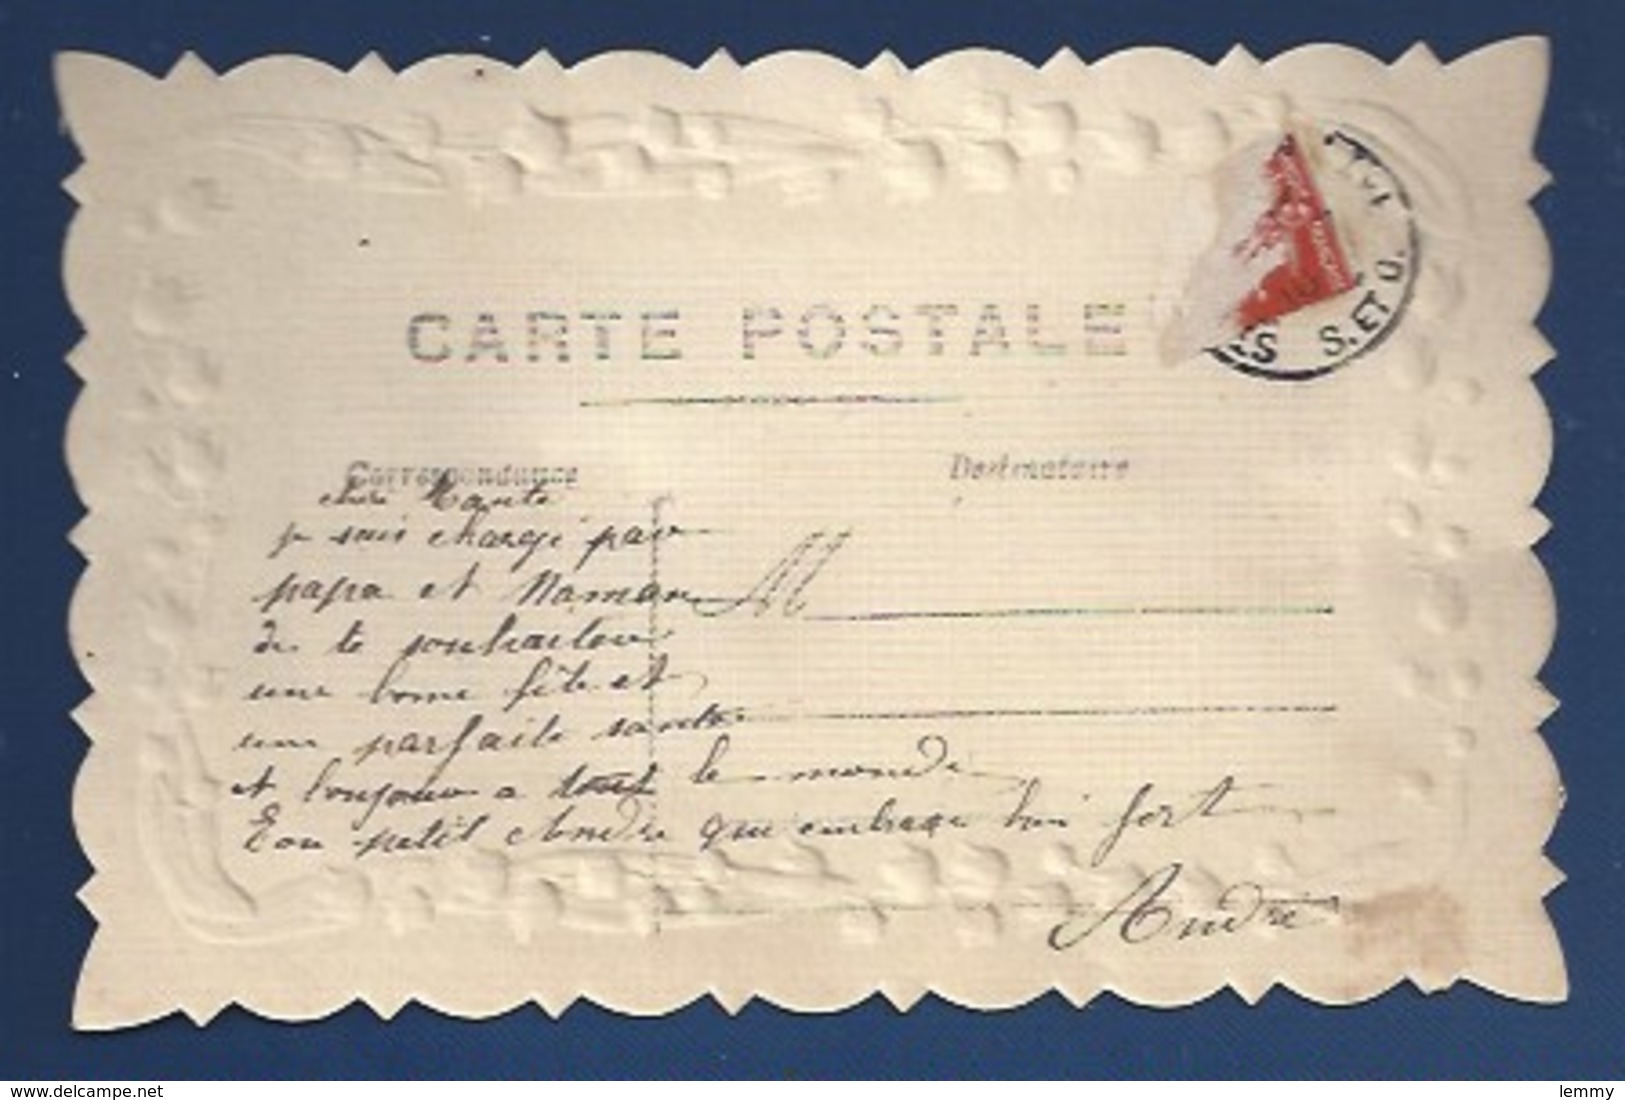 CARTE POSTALE
Correspondance
Destinataire
cheri Tante
je suis chargé par
papa et Maman
de te souhaiter
une bonne fête et
une parfaite santé
et toujours a tout le monde
Ton petit André qui embrase bien fort
André
M
S. ET O.
www.delcampe.net
lemmy